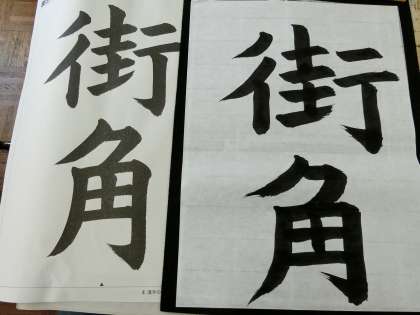 街
角
街
角